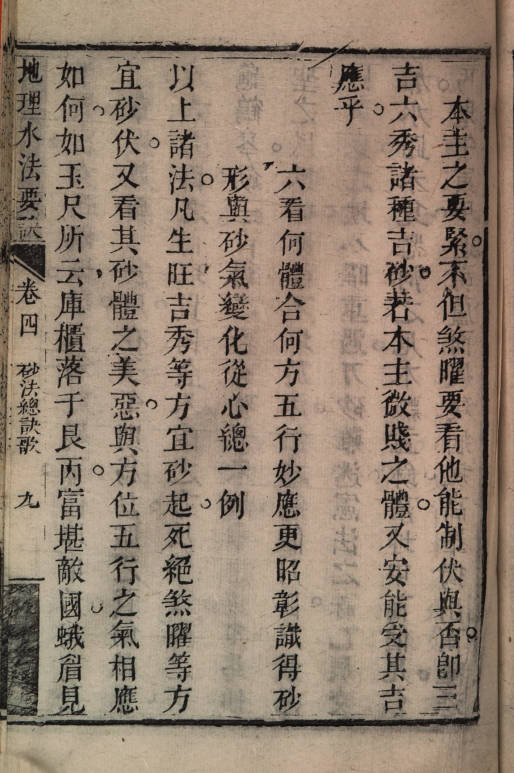 本主之要緊不但煞曜要看他能制伏與否卽三
吉六秀諸種吉砂若本主微賤之體又安能受其吉
應乎
六看何體合何方五行妙應更昭彰識得砂
形與砂氣變化從心總一例
以上諸法凡生旺吉秀等方宜砂起死絕煞曜等方
宜砂伏又看其砂體之美惡與方位五行之氣相應
如何如玉尺所云庫櫃落于艮丙富堪敵國蛾眉見
地理水法要訣 卷四 砂法總訣歌 九